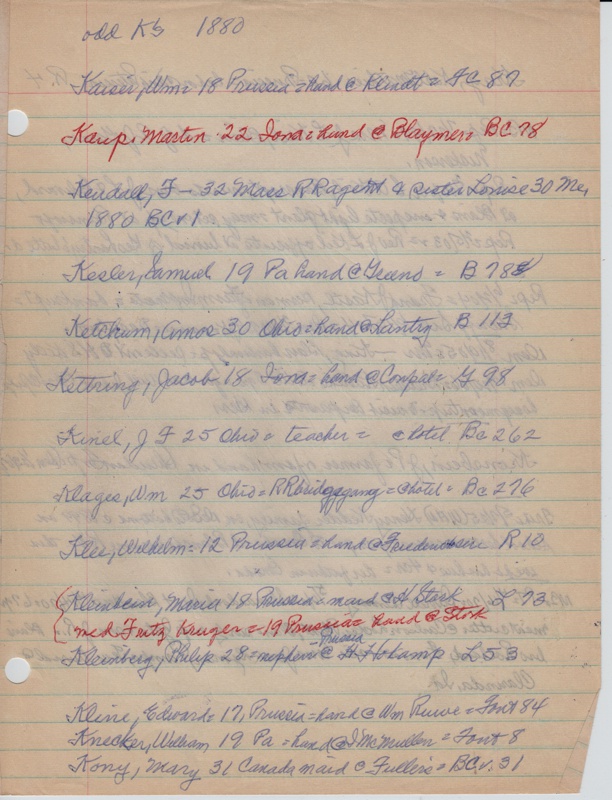 odd K's 1880
Kaiser, Wm = 18 Prussia = hand @ Klindt = FC 87
Kaup, Martin 22 Iowa = hand @ Blaymer = BC 78
Kendall, F - 32 Mass RRagent & sister Louise 30 Me,
1880 BCv1
Kesler, Samuel 19 Pa hand @ Geens = B 78
Ketchum, Amos 30 Ohio = hand @ Lantry B 113
Kettring, Jacob 18 Iowa = hand @ Conpil = G 98
Kinel, J F 25 Ohio = teacher = @ hotel Bc 262
Klages, Wm 25 Ohio = RRbridgegang = @ hotel = Bc 276
Klee, Wilhelm = 12 Prussia = hand @ R 10
Kleinbein, Maria 18 Prussia = maid @ H Stork L 73
med Fritz Kruger = 19 Prussia = hand @ Stork
Kleinberg, Philip 28 = nephew Prussia @ H Hokamp L 53
Kline, Edward = 17, Prussia = hand @ Wm Ruwe = Font 84
Knecker, William 19 Pa = hand @ J McMullen = Font 8
Kony, Mary 31 Canada maid @ Fullers = BCv. 31